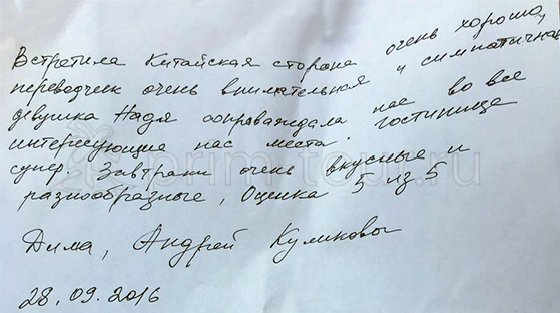 Встретила Китайская сторона очень хорошо,
переводчек очень внимательная и симпатичная
девушка Надя сопроваждала нас во все
интересующие нас места. гостинице
супер. Завтраки очень вкусные и
разнообразные, Оценка 5 из 5
Дима, Андрей Куликовы
28.09.2016
prim-tour.ru